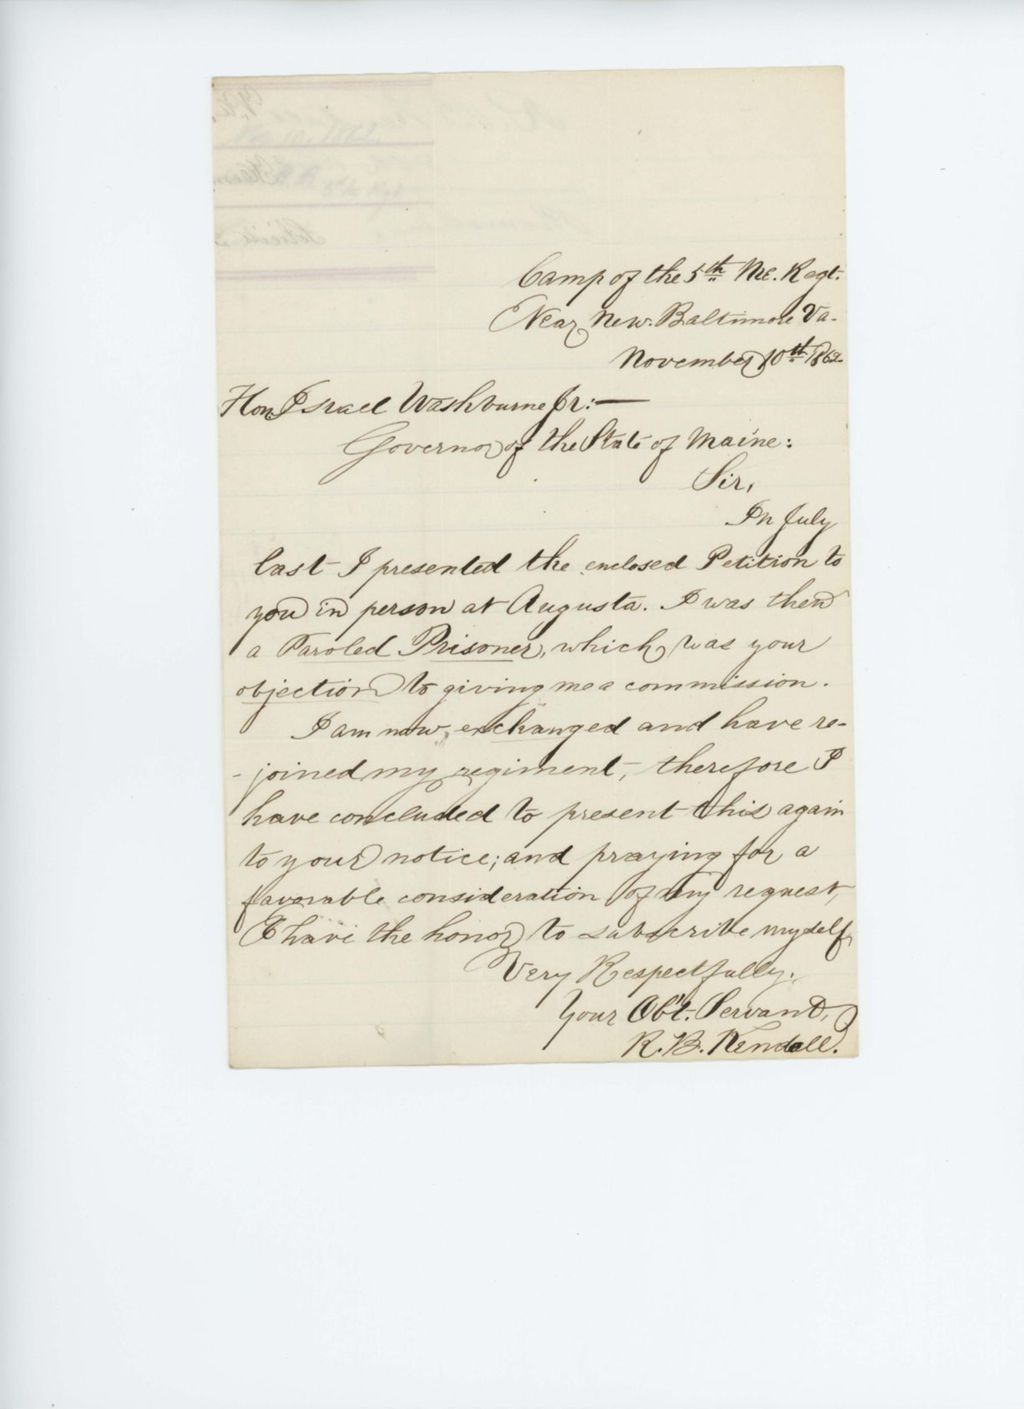 Camp of the 5th Me. Regt.
Near New-Baltimore Va-
November 10th 1862
Hon Israel Washburne Jr:—
Governor of the State of Maine:
Sir,
In July
last I presented the enclosed Petition to
you in person at Augusta. I was then
a Paroled Prisoner, which was your
objection to giving me a commission.
I am now exchanged and have re-
-joined my regiment, therefore I
have concluded to present this again
to your notice; and praying for a
favorable consideration of my request,
I have the honor to subscribe myself
Very Respectfully,
Your Obt. Servant,
R. B. Kendall.